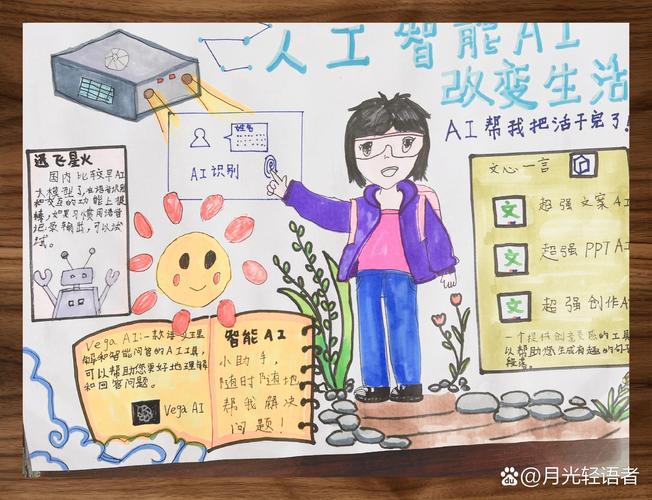 人工智能AI
改变生活
AI帮我把活干完了!
姓名
AI识别
迅飞星火
国内比较早AI
大模型了,在语音识别
和交互的功能上很
棒,如果习惯用语音
记录输出,可以试
试。
文心一言
文 超强文案AI
文 超强PPT AI
文 超强创作AI
一个提供创意灵感的工具
以帮助您生成有趣的句子
段落。
Vega AI:一款语义理
解和智能问答的AI工具,
可以帮助您更好地理解
和回答问题。
Vega AI
智能AI
小助手,
随时随地
帮我解决
问题!
Bai du @月光轻语者